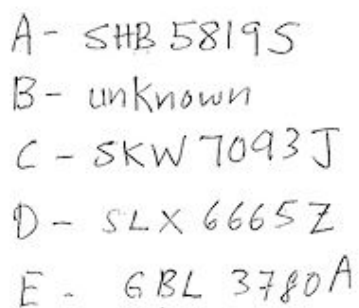 A - SHB 5819S
B - unknown
C - SKW 7093J
D - SLX 6665Z
E - GBL 3780A